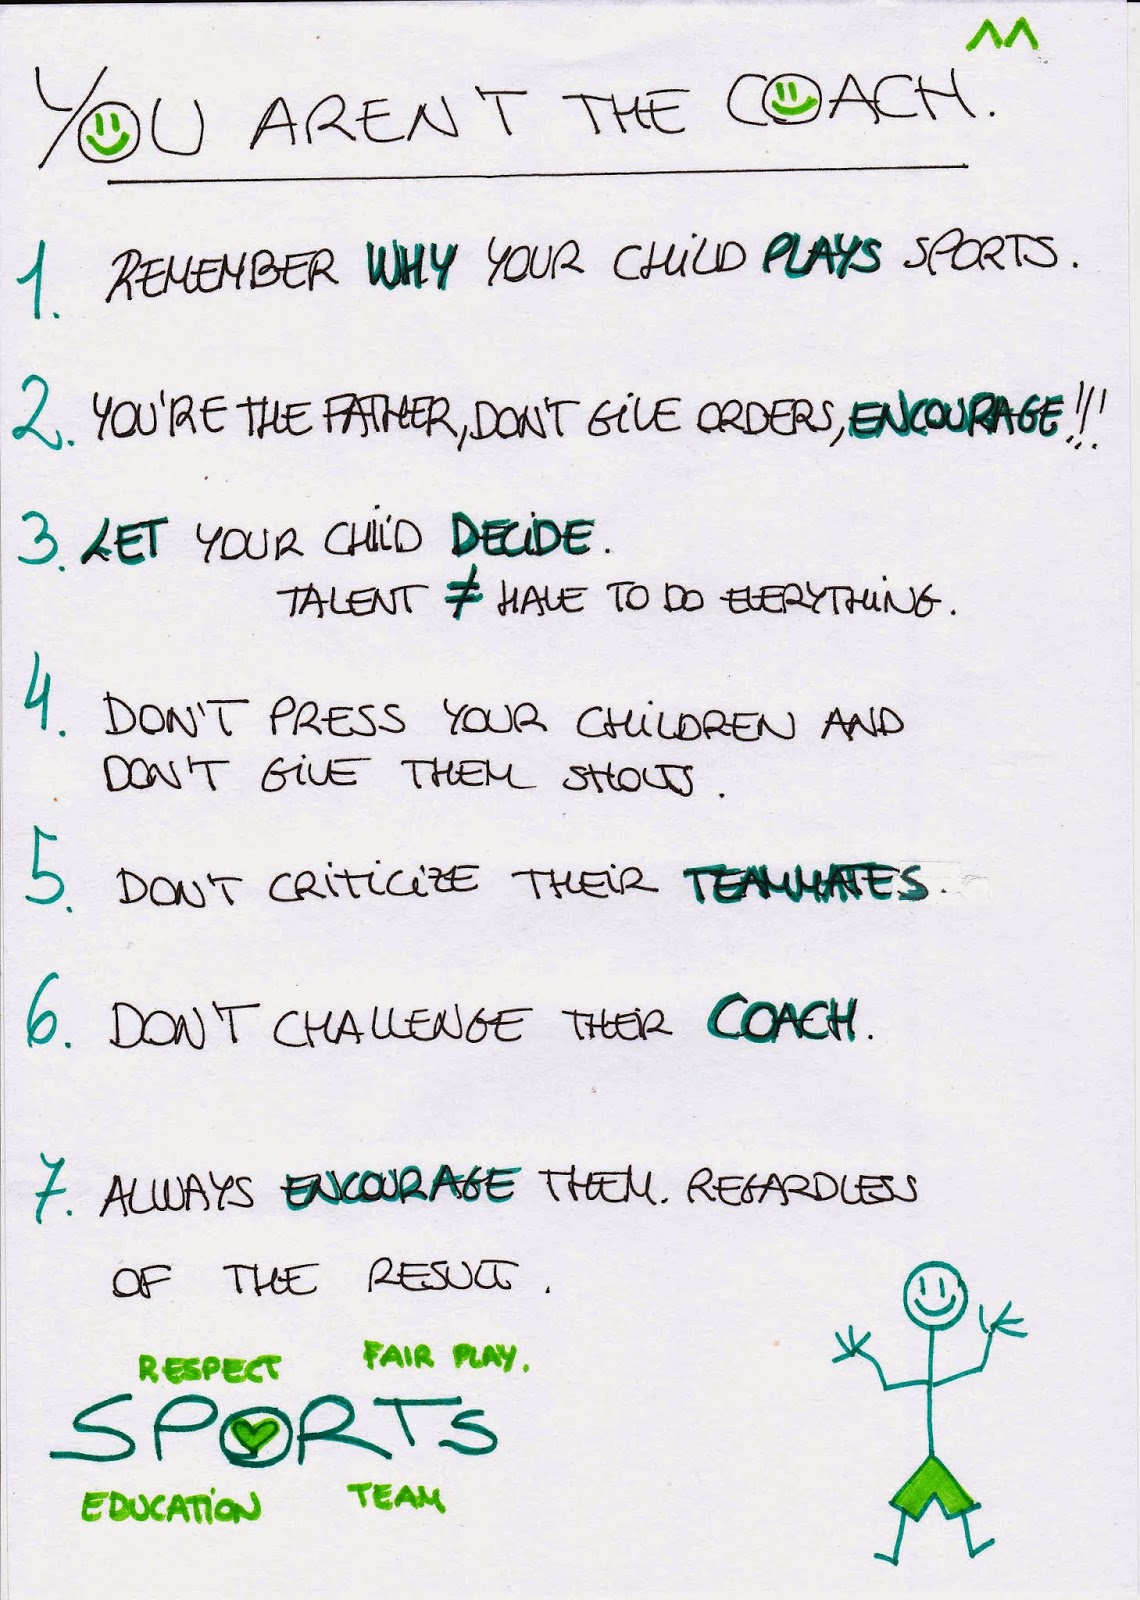 ^^
YOU AREN'T THE COACH.
1. REMEMBER WHY YOUR CHILD PLAYS SPORTS.
2. YOU'RE THE FATHER, DON'T GIVE ORDERS, ENCOURAGE!!!
3. LET YOUR CHILD DECIDE.
TALENT ≠ HAVE TO DO EVERYTHING.
4. DON'T PRESS YOUR CHILDREN AND
DON'T GIVE THEM SHOUTS.
5. DON'T CRITICIZE THEIR TEAMMATES.
6. DON'T CHALLENGE THEIR COACH.
7. ALWAYS ENCOURAGE THEM. REGARDLESS
OF THE RESULT.
RESPECT FAIR PLAY.
SPORTS
EDUCATION TEAM